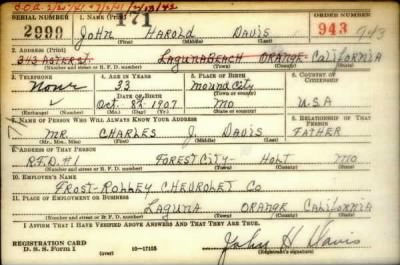 SERIAL NUMBER 1. NAME (Print) 171 ORDER NUMBER
2990 JOHN HAROLD DAVIS 943 943
(First) (Middle) (Last)
2. ADDRESS (Print)
343 ASTER ST. LAGUNA BEACH ORANGE CALIFORNIA
(Number and street or R. F. D. number) (Town) (County) (State)
3. TELEPHONE 4. AGE IN YEARS 5. PLACE OF BIRTH 6. COUNTRY OF CITIZENSHIP
None 33 MOUND CITY
DATE OF BIRTH (Town or county)
Oct. 8th 1907 MO U.S.A
(Mo.) (Day) (Yr.) (State or country)
7. NAME OF PERSON WHO WILL ALWAYS KNOW YOUR ADDRESS 8. RELATIONSHIP OF THAT PERSON
MR. CHARLES J. DAVIS FATHER
(Mr., Mrs., Miss) (First) (Middle) (Last)
9. ADDRESS OF THAT PERSON
R.F.D. #1 FOREST CITY- HOLT MO
(Number and street or R. F. D. number) (Town) (County) (State)
10. EMPLOYER'S NAME
FROST-ROLLEY CHEVROLET CO
11. PLACE OF EMPLOYMENT OR BUSINESS
LAGUNA ORANGE CALIFORNIA
(Number and street or R. F. D. number) (Town) (County) (State)
I AFFIRM THAT I HAVE VERIFIED ABOVE ANSWERS AND THAT THEY ARE TRUE.
REGISTRATION CARD
D. S. S. Form 1 16—17105 John H. Davis
(Registrant's signature)